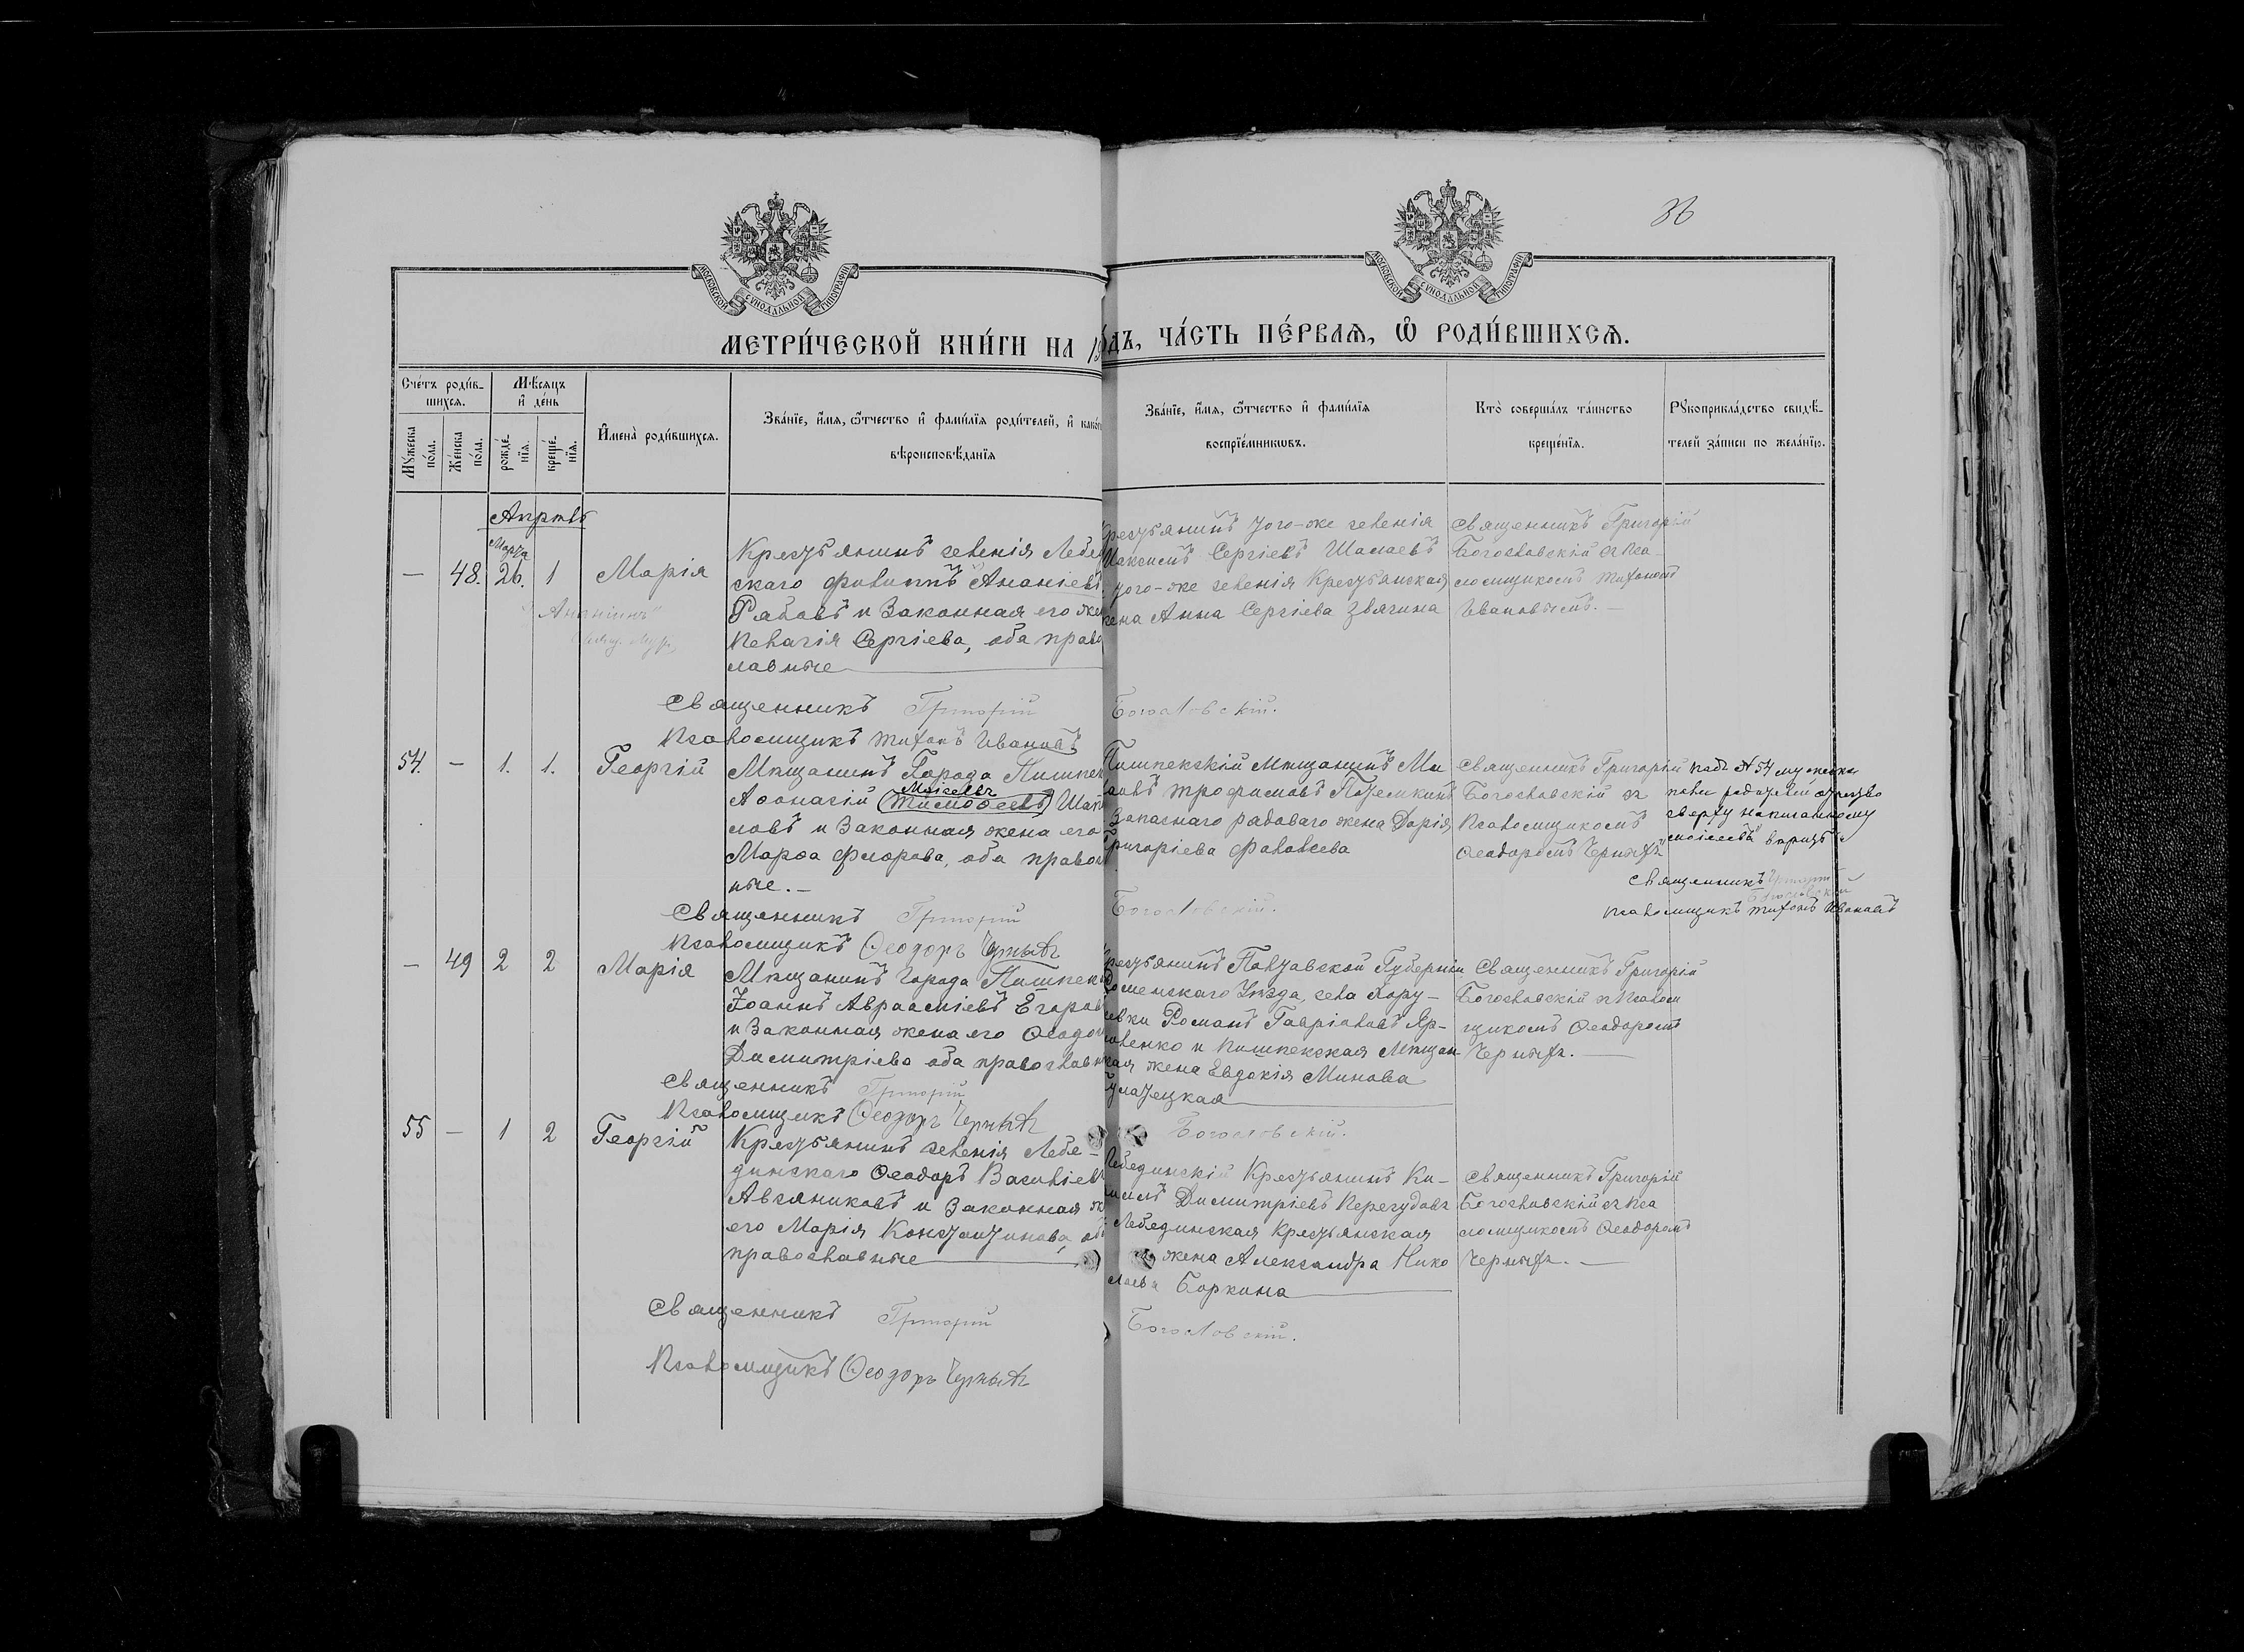 36
МОСКОВСКОЙ СѴНОДАЛЬНОЙ ТИПОГРАФІИ
МОСКОВСКОЙ СѴНОДАЛЬНОЙ ТИПОГРАФІИ
МЕТРИ́ЧЕСКОЙ КНИ́ГИ НА 19
ДЪ, ЧА́СТЬ ПЕ́РВАѦ, Ѽ РОДИ́ВШИХСѦ.
Сче́тъ роди́в-
шихсѧ.
Мѣ́сѧцъ
и҆ де́нь
Мꙋ́жеска
по́ла.
Же́нска
по́ла.
рожде́-
нїѧ.
креще́-
нїѧ.
И҆мена̀ роди́вшихсѧ.
Зва́нїе, и҆́мѧ, ѻ҆́тчество и҆ фами́лїѧ роди́телей, и҆ како́г
вѣроисповѣ́данїѧ
Зва́нїе, и҆́мѧ, ѻ҆́тчество и҆ фами́лїѧ
воспрїе́мникѡвъ.
Кто̀ соверша́лъ та́инство
креще́нїѧ.
Рꙋкоприкла́дство свидѣ́-
телей за́писи по жела́нїю.
Апрѣль
Марта
— 48. 26. 1 Марія
Крестьянинъ селенія Лебе
скаго Филиппъ Ананіевъ
Рябовъ и законная его же
Пелагія Сергіева, оба право
славные
Ананіинъ
рестьянинъ того-же селенія
Максимъ Сергіевъ Шамаевъ
того-же селенія Крестьянская
жена Анна Сергіева Звягина
Священникъ Григорій
Богословскій съ Пса-
ломщикомъ Тихономъ
Ивановымъ. —
Священникъ Григорій Богословскій.
Псаломщикъ Тихонъ Ивановъ
54. — 1. 1. Георгій
Мѣщанинъ Города Пишпек
Моисеевъ
Аѳонасій Тимоѳеевъ Шап
ловъ и законная жена его
Марѳа Флорова, оба правос
ные. —
Пишпекскій Мѣщанинъ Ми
аилъ Трофимовъ Потемкинъ
Запаснаго рядоваго жена Дарія
Григоріева Фалалѣева
Священникъ Григорій
Богословскій съ
Псаломщикомъ
Ѳеодоромъ Черныхъ
Въ № 54 мужска
пола родителей отчество
сверху написанному
"Моисеевъ" вѣрить
Священникъ Григорій
Богословскій
Псаломщикъ Тихонъ Ивановъ
Священникъ Григорій Богословскій.
Псаломщикъ Ѳеодоръ Черныхъ
— 49 2 2 Марія
Мѣщанинъ города Пишпек
Іоаннъ Авраамiевъ Егоров
и законная жена его Ѳеодос
Димитріева оба православн
рестьянинъ Полтавской Губерніи
Роменскаго Уѣзда, села Кору-
евки Романъ Гавріиловъ Яр-
оленко и Пишпекская Мѣщан
ская жена Евдокія Минова
Священникъ Григорій
Богословскій съ Псалом
щикомъ Ѳеодоромъ
Черныхъ. —
Священникъ Григорій
Псаломщикъ Ѳеодоръ Черныхъ
Богословскій.
55 — 1 2 Георгій
Крестьянинъ селенія Лебе-
динскаго Ѳеодоръ Василіевъ
Авсяниковъ и законная ж
его Марія Константинова, оба
православные
Лебединскій Крестьянинъ Ки-
риллъ Димитріевъ Перегудовъ
Лебединская Крестьянская
жена Александра Нико
лаева Боркина
Священникъ Григорій
Богословскій съ Пса
ломщикомъ Ѳеодоромъ
Черныхъ. —
Священникъ Григорій Богословскій.
Псаломщикъ Ѳеодоръ Черныхъ